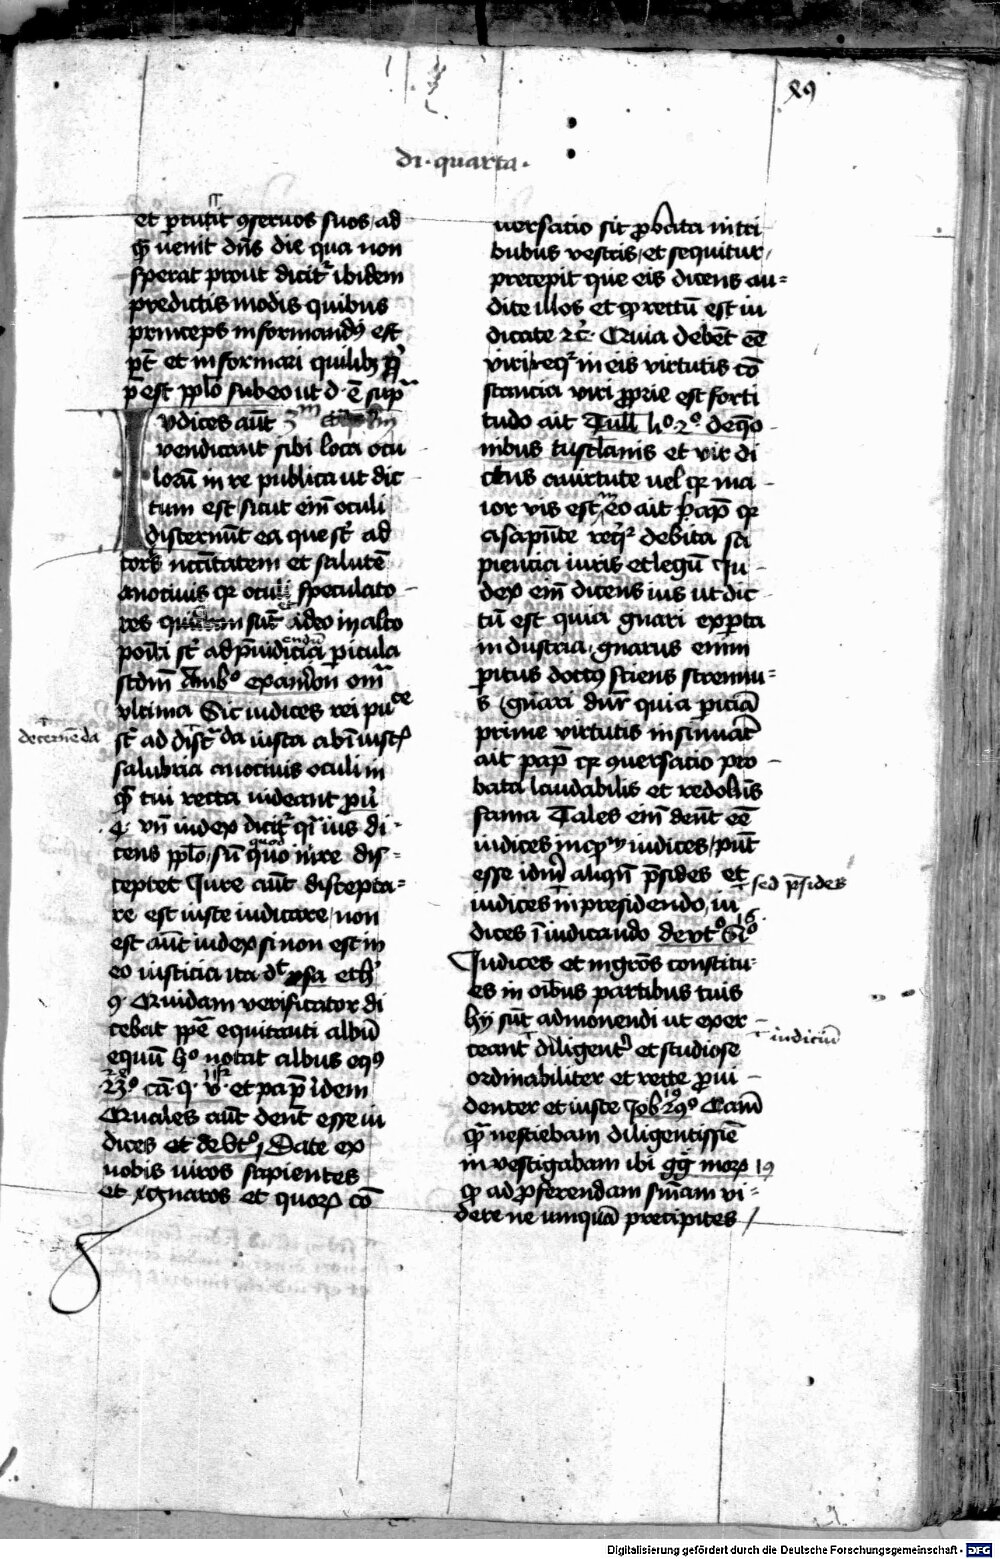 89
di · quarta ·
et p̄cutit ꝯseruos suos ad
q̄ venit dn̄s die qua non
sperat prout dicit᷑ ibidem
predictis modis quibus
princeps informandꝰ est
pt̄ et informari quilibꝫ
p̄ est ppl̄o sub eo ut d ē sup᷑
Iudices aūt
vendicant sibi loca ocu
loꝝ in re publica ut dic
tum est sicut em̄ oculi
discernūt ea que sūt ad
corꝑ nccītatem et salutē
a nociuis qꝛ oculi speculato
res sūt adeo in alto
poīti sūt ad p̄uidendū pericula
scdm̄ Amb° exam̄on om̄
vltima Sic iudices rei puce
sūt ad discernēda iusta ab iniustꝭ
decernēda
salubria a nociuis oculi in
q̄ tui recta uideant pū
4° vn̄ iudex dicit᷑ qͥ ius di-
cens ppl̄o siū quod iure dis=
ceptet Iure aūt discepta=
re est iuste iudicare non
est aūt iudex si non est in
eo iusticia ita dt ysa eth
9 Quidam versificator di
cebat pp̄e equitanti albū
equū h° notat albus eqꝰ
23° cā q v et pap̄ idem
Quales aūt dent̄ esse iu
dices et debt° j Date ex
uobis uiros sapientes
et gnaros et quorꝝ cō
uersatio sit p̄bata in tri
bubus vestris et sequitur
precepit que eis dicens au=
dite illos et qd̄ rectū est iu
dicate ⁊c̄ Quia debēt eē
viri req᷑ in eis virtutis cō
stancia viri prie est forti
tudo ait Tull li° 2° de qō
nibus tusclanis et vir di
ctus a uirtute uel qꝛ ma
ior vis est in eo ait p̄ pap̄ qꝛ
a sapiīte req᷑ debita sa
piencia iuris et legū Iu
dex em̄ dicens ius ut dic
tū est quia gnari expͣta
industria gnarus enim
pitus doctꝰ sciens strennu=
s gnari dn̄r quia piciā
prime virtutis insinuat̄
ait pap̄ qꝛ ꝯuersatio pro
bata laudabilis et redolēs
fama Tales em̄ dent̄ eē
iudices iudices pn̄t
esse idm̄ aliqn̄ p̄sides et
sed p̄sides
iudices in presidendo iu
dices ī iudicando deut° 16
Iudices et mgr̄os constitu
es in oībus partibus tuis
hy sūt admonendi ut exer
iudiciū
ceant diligent᷑ et studiose
ordinabiliter et recte pui
denter et iuste Job 29° Cām
q̄ nesciebam diligentissīe
inuestigabam ibi gḡ morꝝ 19
qd̄ ad pferendam sn̄iam vi=
dere ne umquā precipites